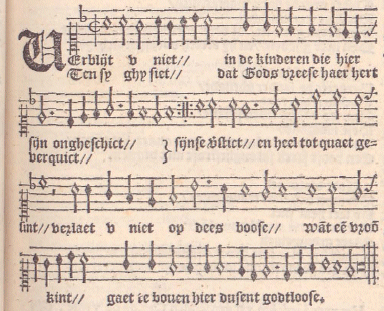 VErblijt v niet// in de kinderen die hier
Ten sy ghy siet// dat Gods vreese haer hert
sijn ongheschict// } sijnse Östict// en heel tot quaet ge-
verquict//
sint// verlaet v niet op dees boose// wāt eē vroō
kint// gaet te bouen hier dusent godtloose.